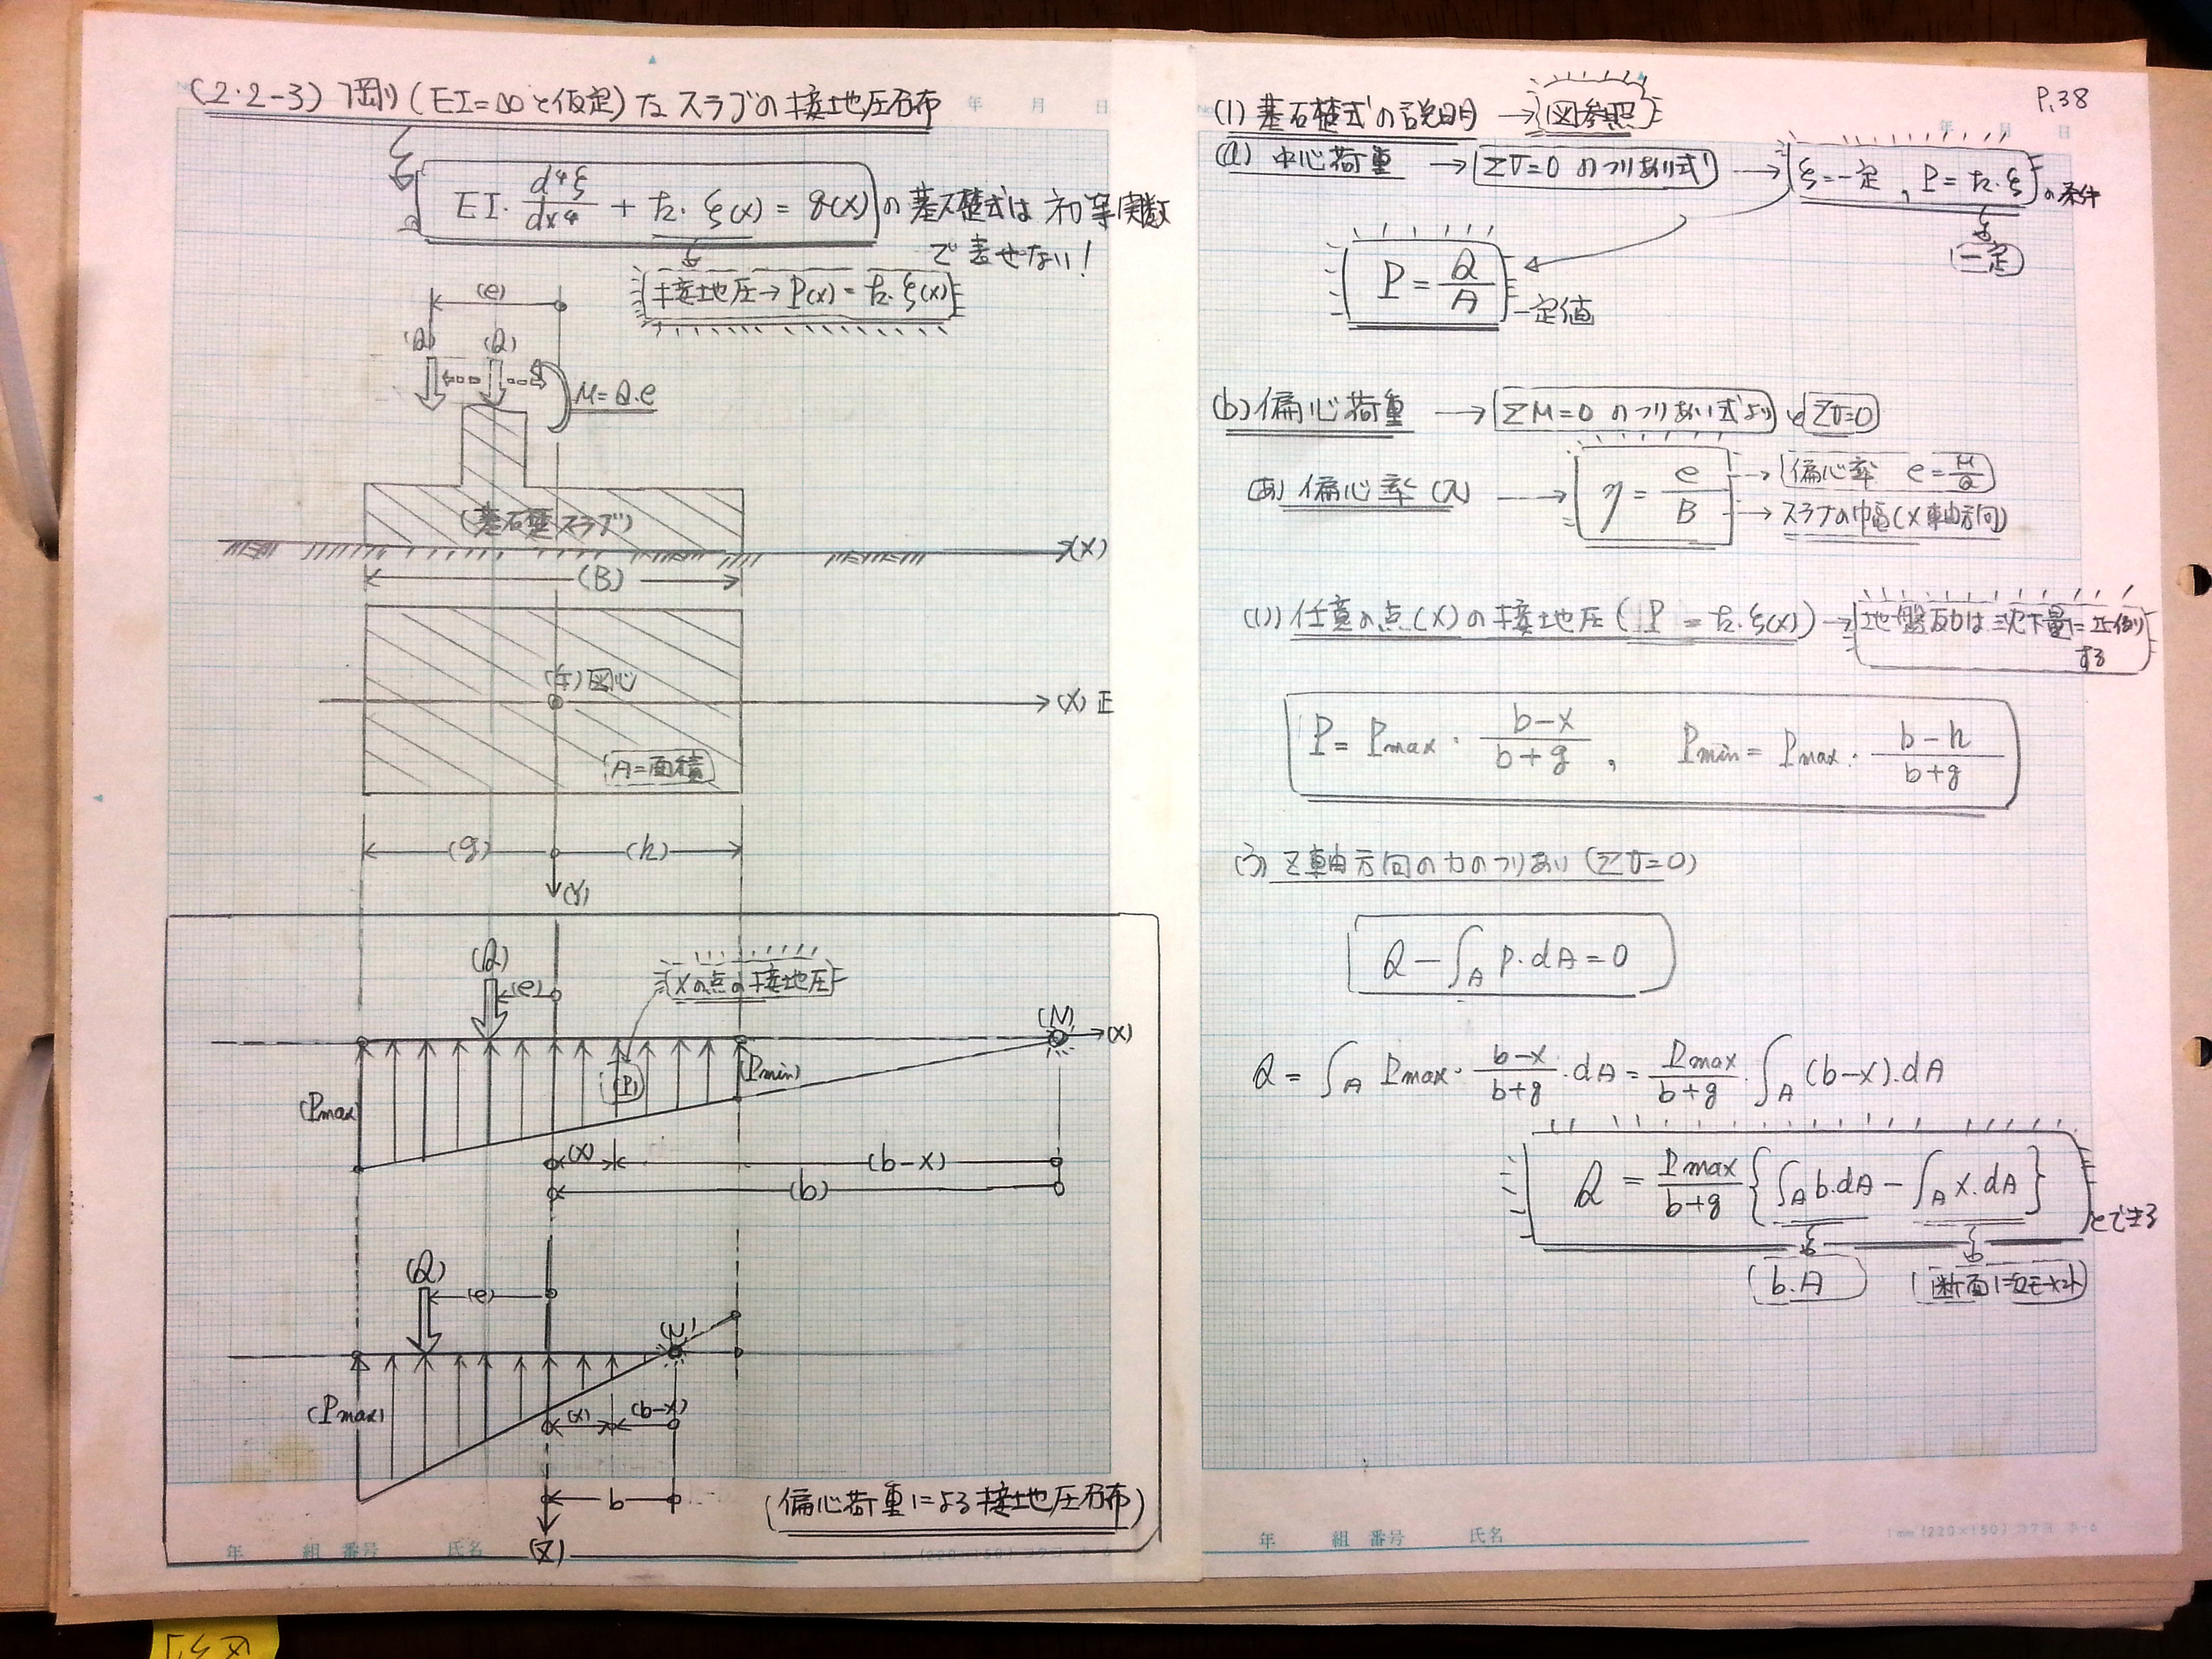 (2・2-3) 剛(EI=∞と仮定)なスラブの接地圧分布
EI・d⁴ξ/dx⁴ + k・ξ(x) = q(x) の基礎式は初等実数
で表せない!
接地圧→P(x)=k・ξ(x)
(e)
(Q) (Q)
M=Q・e
(基礎スラブ)
(X)
(B)
図心
(X)正
A=面積
(g) (h)
(Y)
(Q)
(e)
Xの点の接地圧
(N)
(X)
(P)
(Pmin)
(Pmax)
(X) (b-X)
(b)
(Q)
(e)
(N)
(Pmax)
(X) (b-X)
b
(偏心荷重による接地圧分布)
(Z)
年 組 番号 氏名
年 月 日
P.38
(1) 基礎式の説明 → 図参照
年 月 日
(a) 中心荷重 → ΣV=0 のつりあい式 → ξ=一定, P=k・ξ の条件
一定
P = Q/A 一定値
(b) 偏心荷重 → ΣM=0 のつりあい式より ΣV=0
(あ) 偏心率 → η = e/B → 偏心率 e=M/Q
→ スラブの巾(X軸方向)
(い) 任意の点(X)の接地圧(P = k・ξ(x)) → 地盤反力は沈下量に正比例
する
P = Pmax・(b-x)/(b+g), Pmin = Pmax・(b-h)/(b+g)
(う) Z軸方向の力のつりあい(ΣV=0)
Q - ∫A P・dA = 0
Q = ∫A Pmax・(b-x)/(b+g)・dA = Pmax/(b+g)・∫A (b-x)・dA
Q = Pmax/(b+g) {∫A b・dA - ∫A x・dA} とできる
b・A
断面1次モーメント
年 組 番号 氏名
1mm (220×150) コクヨ ホ-6